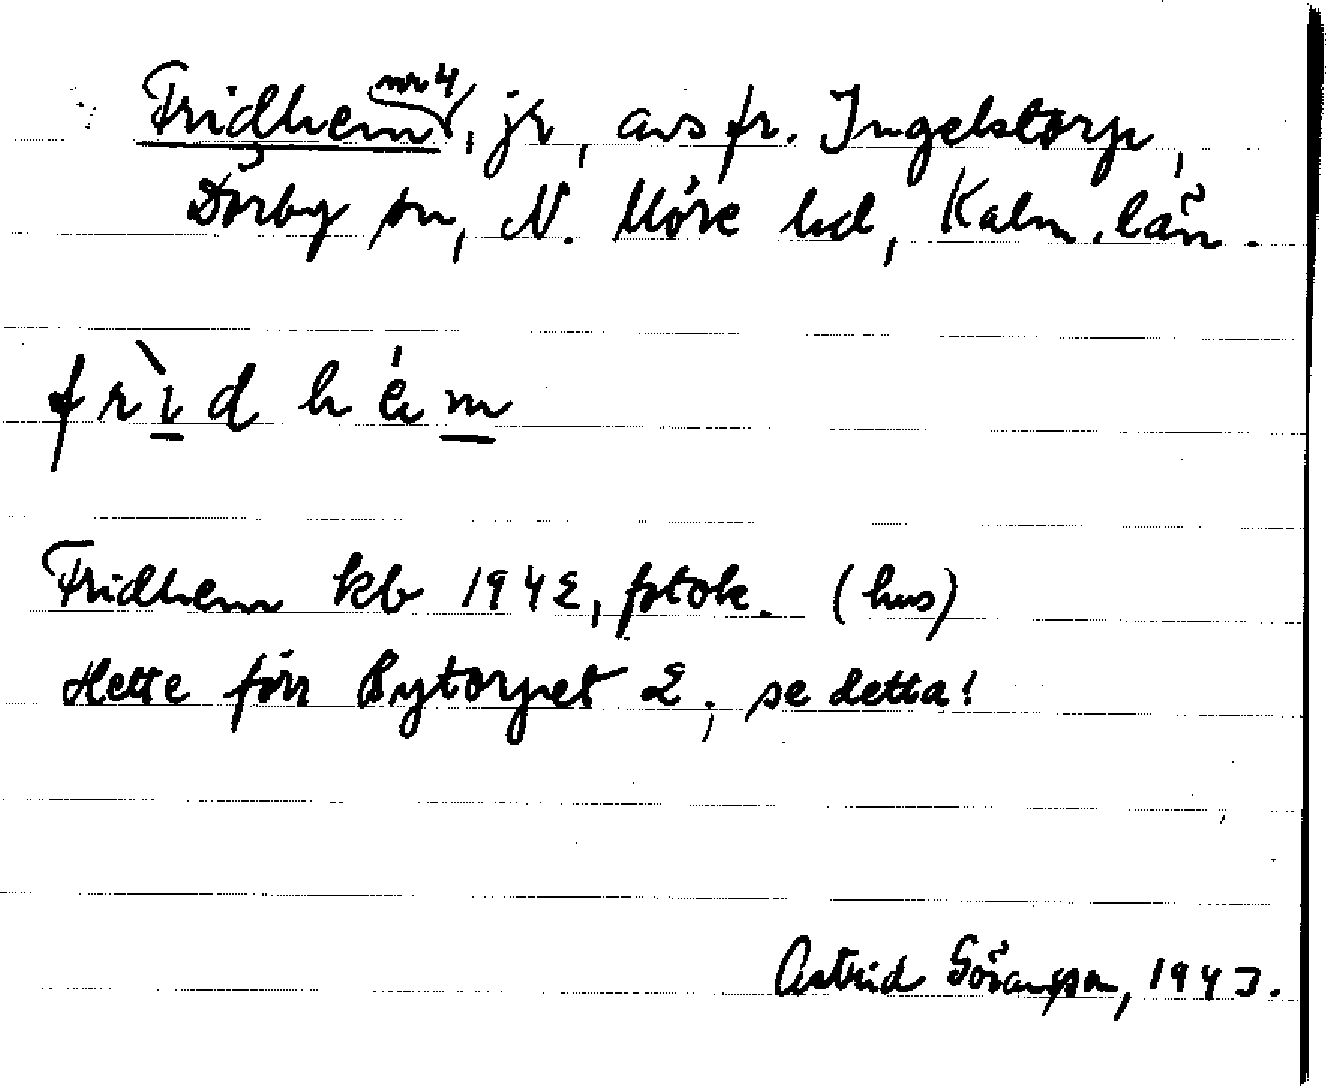 Fridhem nr 4, jr, avs fr. Ingelstorp,
Dörby sn, N. Möre hd, Kalm. län.
frìdhém
Fridhem kb 1942, fstok. (hus)
Hette förr Bytorpet 2, se detta!
Astrid Göransson, 1943.